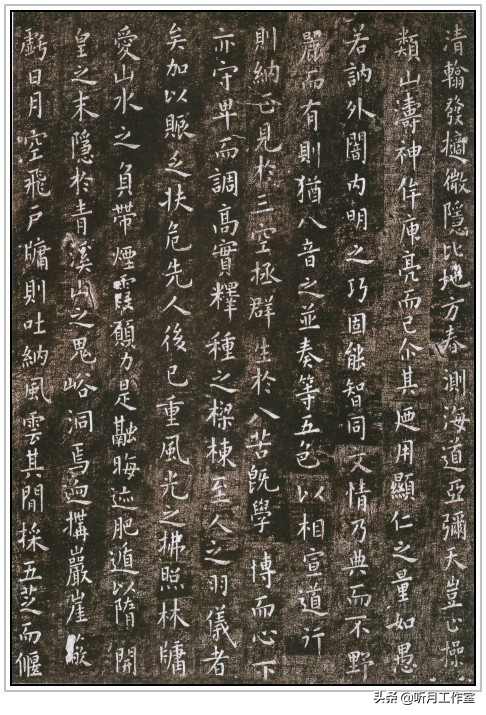 清翰發擿微隱比地方春測海道亞彌天豈止操
類山濤神侔庾亮而已尒其廼用顯仁之量如愚
若訥外闇內明之巧固能智同文情乃典而不野
麗而有則猶八音之並奏等五色以相宣道行
則納正見於三空拯群生於八苦旣學博而心下
亦守卑而調高實釋種之樑棟至人之羽儀者
矣加以賑乏扶危先人後已重風光之拂照林牖
愛山水之負帶煙霞願力是融晦迹肥遁以隋開
皇之末隱於青溪山之鬼峪洞焉迺搆巖崖蔽
虧日月空飛戶牖則吐納風雲其間採五芝而偃
头条 @听月工作室